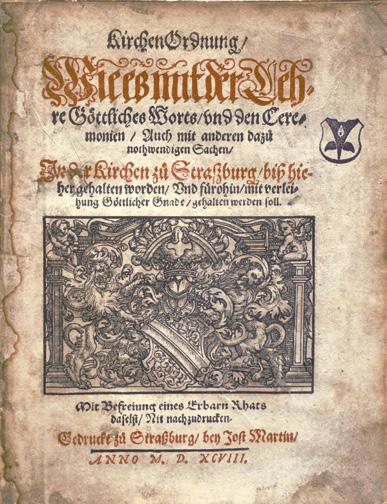 KirchenOrdnung/
Wie es mit der Leh-
re Göttliches Worts/ vnd den Cere-
monien/ Auch mit anderen dazů
nothwendigen Sachen/
In der Kirchen zů Straßburg/ biß hie-
her gehalten worden/ Vnd fürohin/ mit verlei-
hung Göttlicher Gnade/ gehalten werden soll.
Mit Befreiung eines Erbarn Rhats
daselst/ Nit nachzudrucken.
Gedruckt zů Straßburg/ bey Jost Martin/
ANNO M. D. XCVIII.